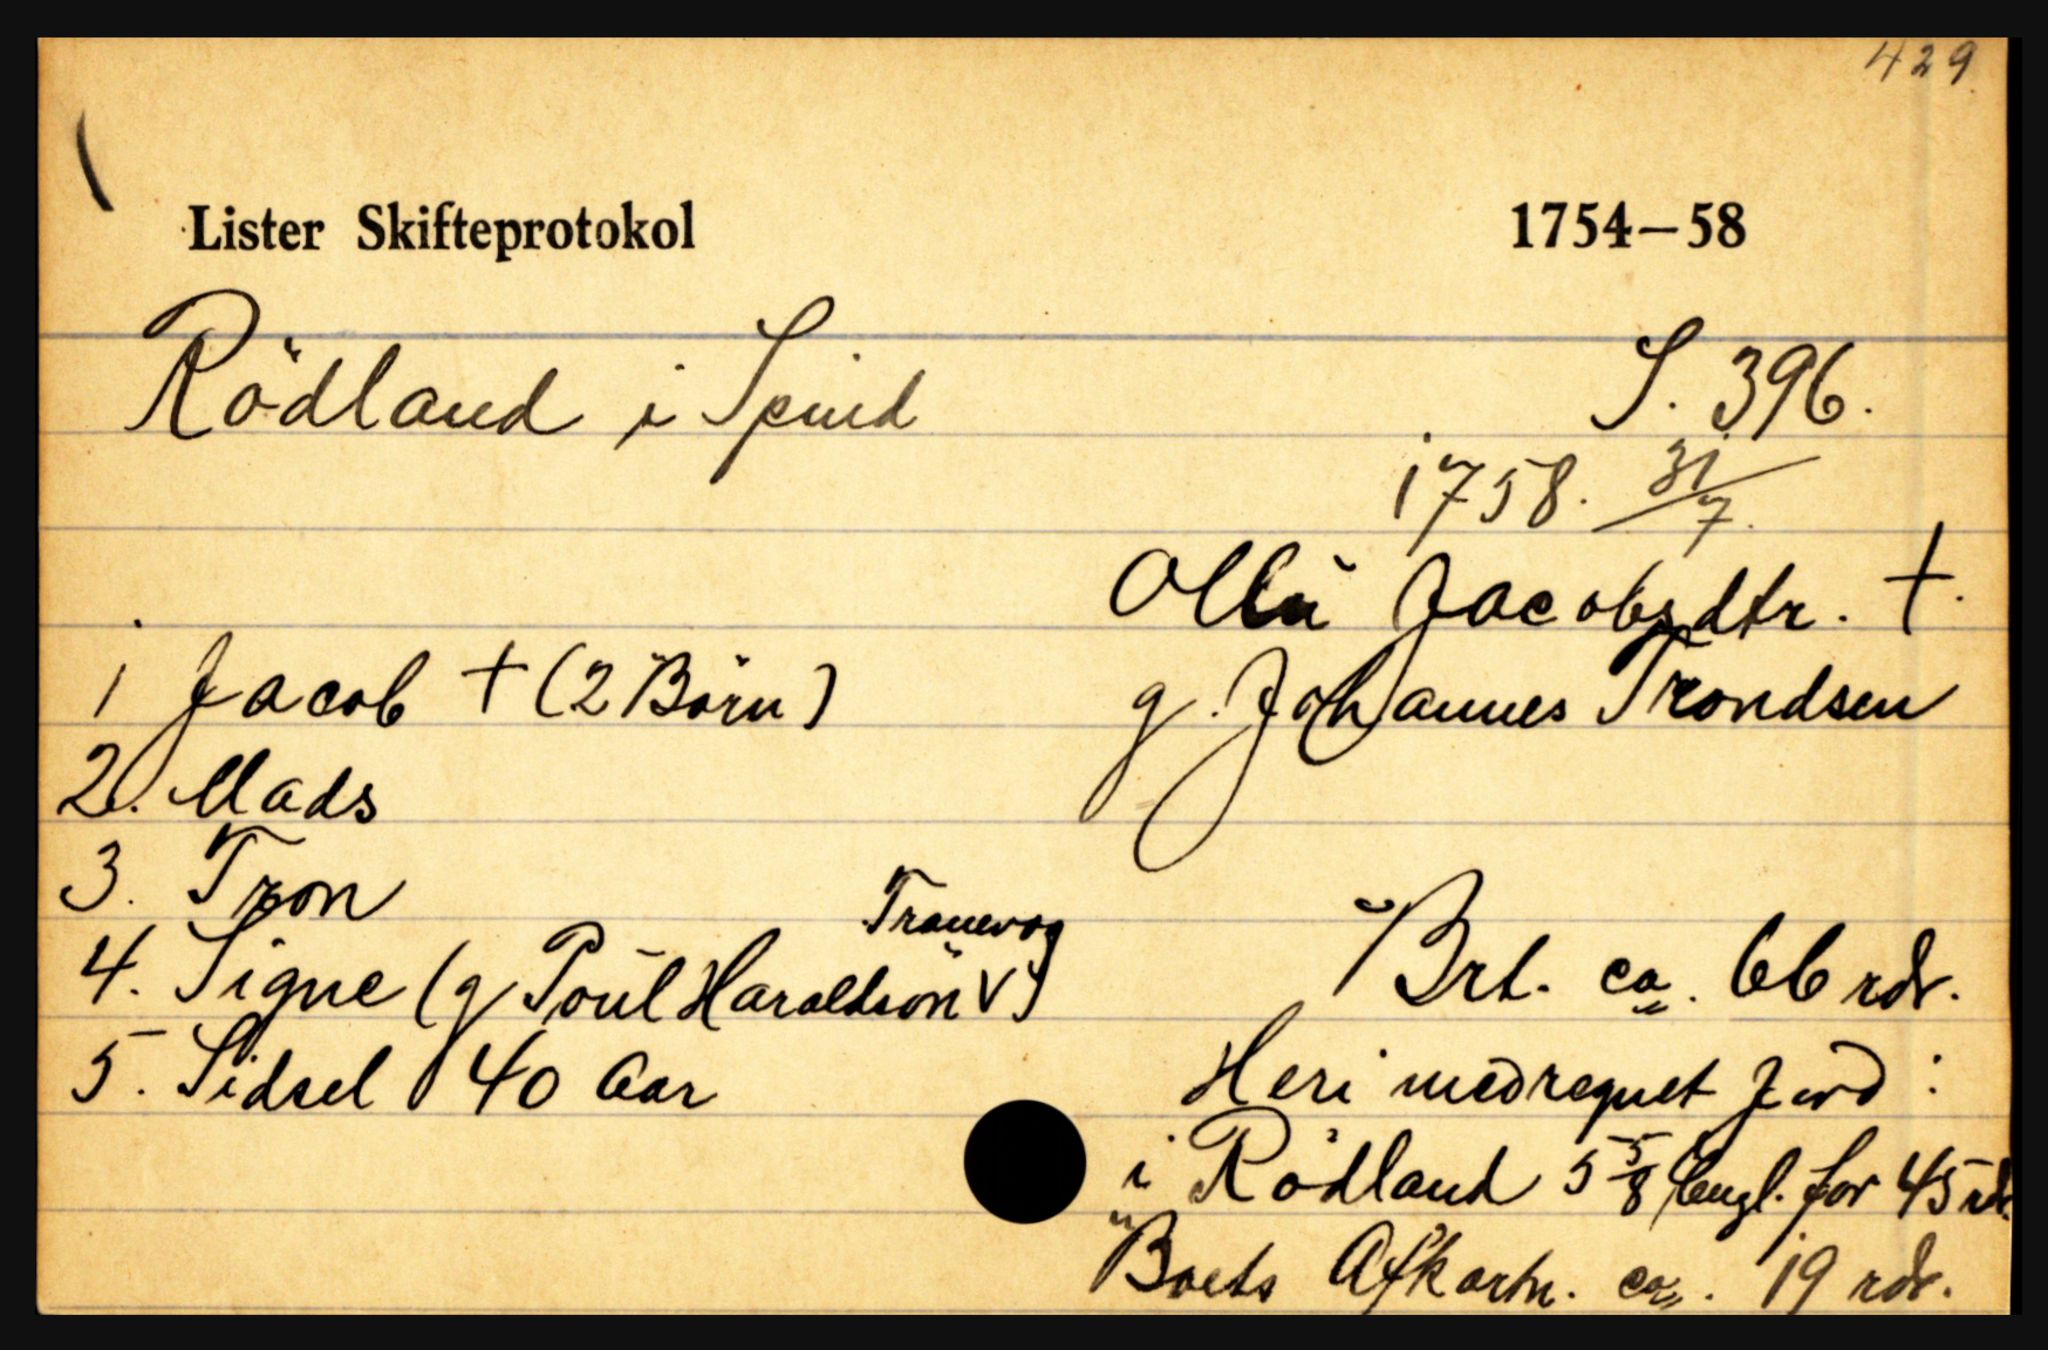 429.
Lister Skifteprotokol 1754—58
Rödland i Spind S. 396.
1758. 31/7.
Jacobsdtr. †.
1 Jacob † (2 Börn) g. Johannes Trondsen
2. Mads
3. Tron
Tranevog
4. Signe (g Poul Haraldsön V) Brt. ca. 66 rdr.
5. Sidsel 40 Aar Heri medregnet Jord:
i Rödland 5 5/8 Engl. for 45 rdr.
Boets Afkastn. ca. 19 rdr.